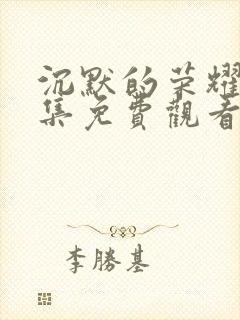 沉默的荣耀
集免費觀看
李勝基